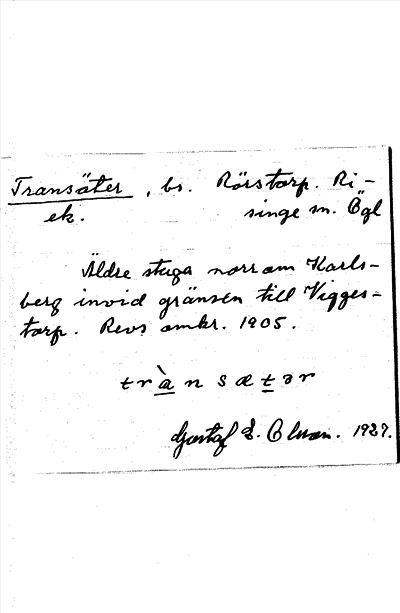 Transäter, bs. Rörstorp. Ri-
ek. singe sn. Ögl
Äldre stuga norr om Karls-
berg invid gränsen till Vigges-
torp. Revs omkr. 1905.
trànsætər
Gustaf E. Olsson. 1927.